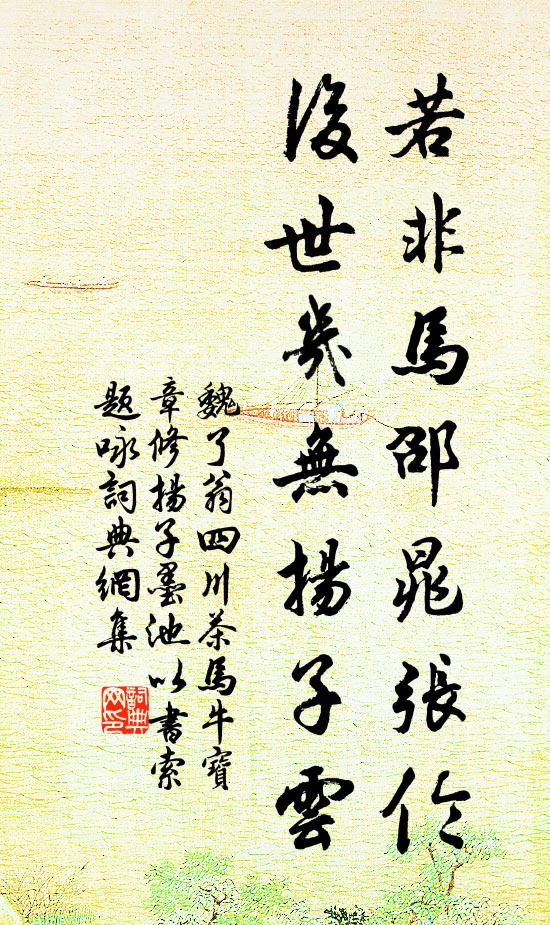 若非馬邵晁張倫
後世幾無揚子雲
魏了翁四川茶馬牛寶
章修揚子墨池以書索
題咏詞典網集
詞典網印